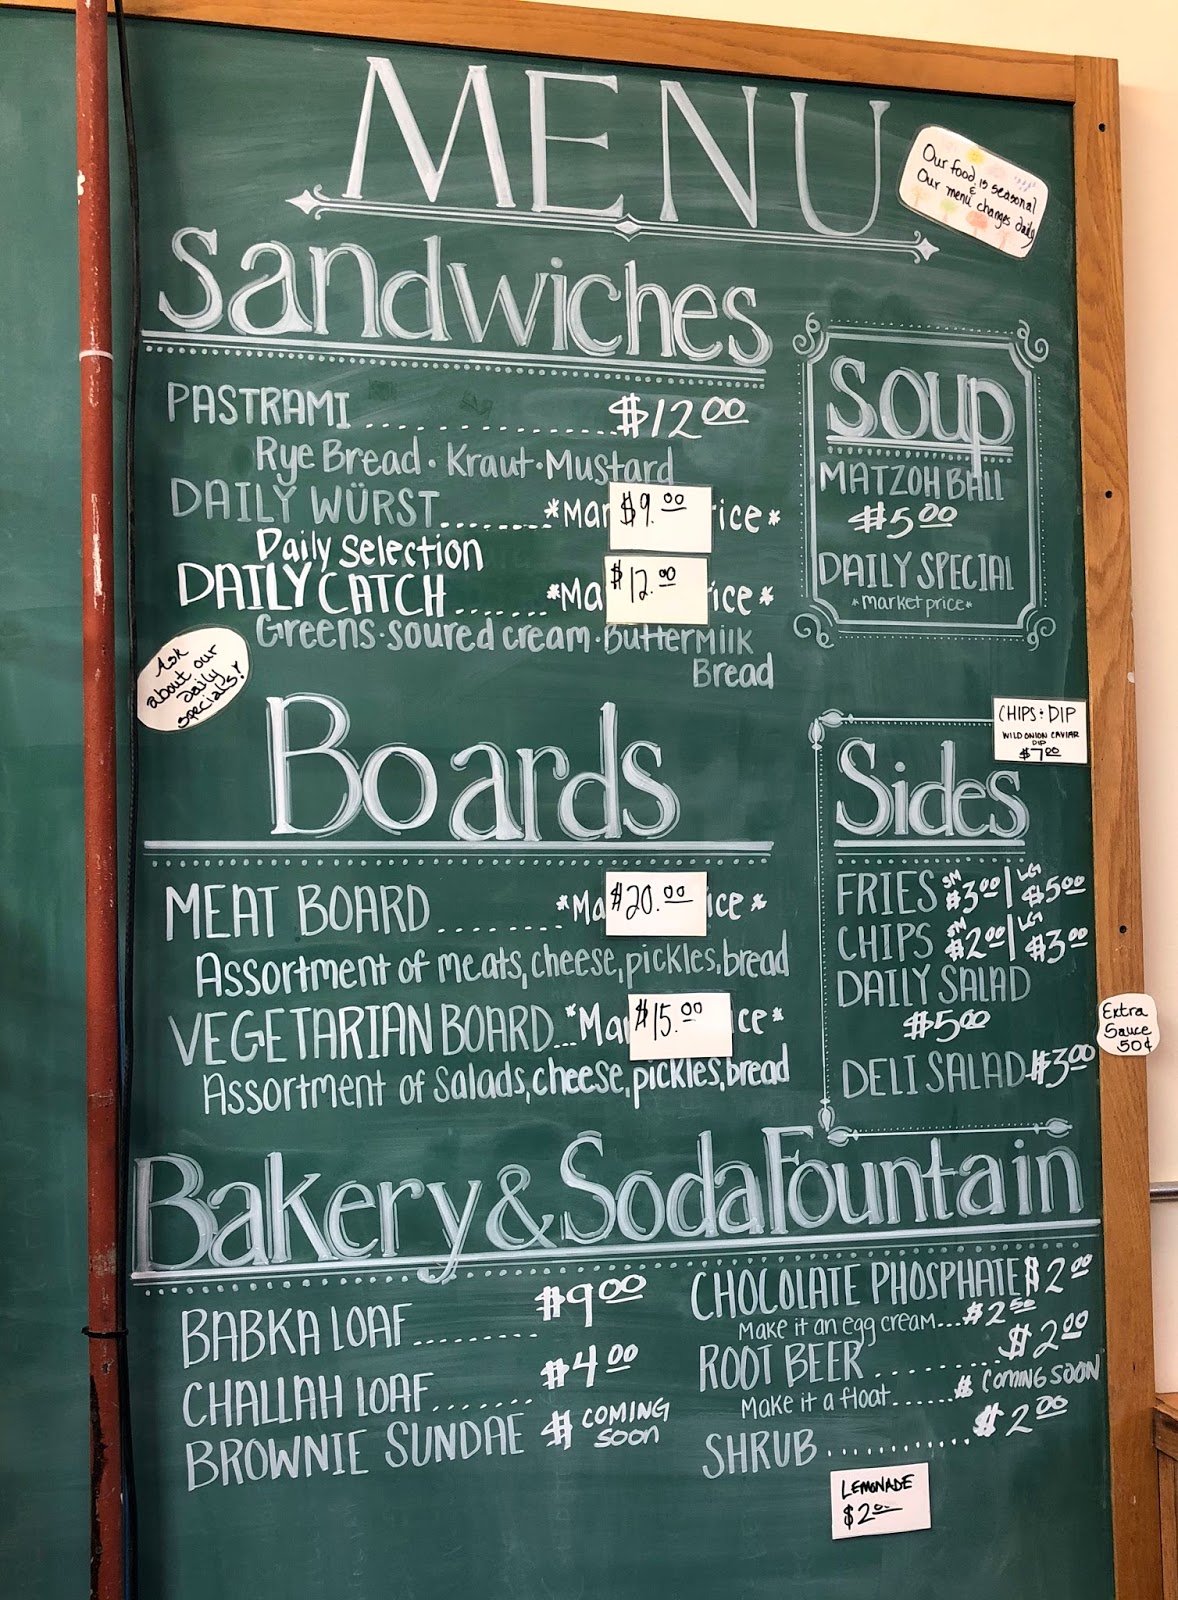 MENU
Our food is seasonal
&
Our menu changes daily
Sandwiches
PASTRAMI ................ $12.00
Rye Bread · Kraut · Mustard
DAILY WÜRST ....... *Mar $9.00 ice *
Daily Selection
DAILY CATCH ....... *Ma $12.00 ice *
Greens · Soured cream · Buttermilk
Bread
Soup
MATZOH BALL
$5.00
DAILY SPECIAL
*market price*
Ask
about our
daily
specials!
Boards
MEAT BOARD ......... *Ma $20.00 ice *
Assortment of meats, cheese, pickles, bread
VEGETARIAN BOARD... *Ma $15.00 ce *
Assortment of Salads, cheese, pickles, bread
CHIPS & DIP
WILD ONION CAVIAR
DIP
$7.00
Sides
FRIES SM $3.00 | LG $5.00
CHIPS SM $2.00 | LG $3.00
DAILY SALAD
$5.00
DELI SALAD $3.00
Extra
Sauce
50¢
Bakery & Soda Fountain
BABKA LOAF .......... $9.00
CHALLAH LOAF ........ $4.00
BROWNIE SUNDAE $ COMING
SOON
CHOCOLATE PHOSPHATE $2.00
Make it an egg cream... $2.50
ROOT BEER .......... $2.00
Make it a float ...... $ COMING SOON
SHRUB ............. $2.00
LEMONADE
$2.00